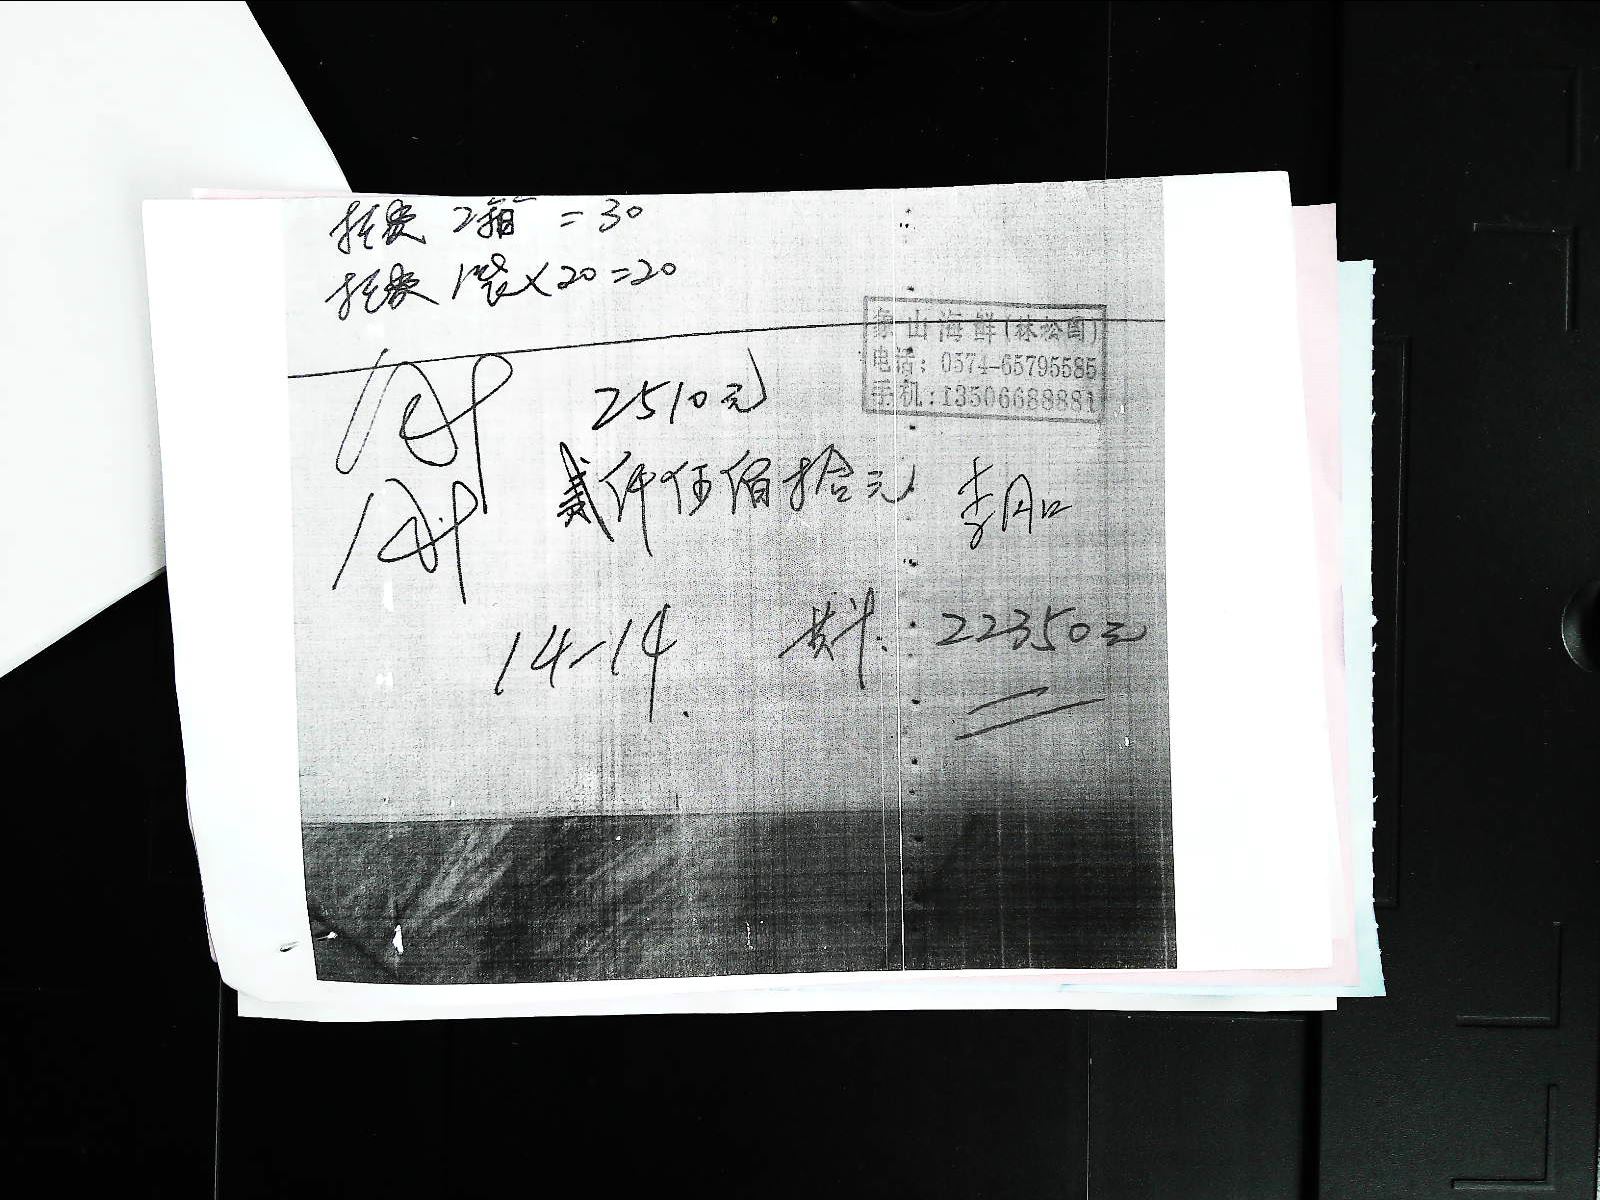 托费 2箱 =30
托费 1袋×20=20
象山海鲜(林松国)
电话: 0574-65795585
手机:13506688881
2510元
贰仟伍佰拾元
14-14.
共计: 22350元